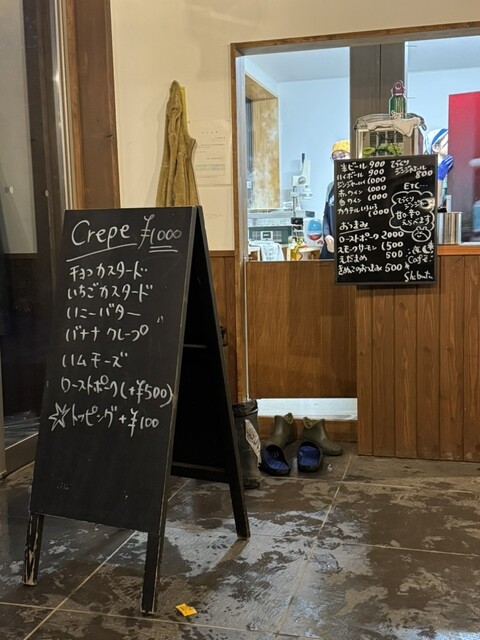 Crepe ¥1000
チョコカスタード
いちごカスタード
バナナクレープ
ハムチーズ
ローストポーク(+¥500)
☆トッピング+¥100
生ビール 900
ハイボール 900
1000
赤ワイン 1000
白ワイン 1000
カクテルいろいろ 1000
おつまみ
ローストポーク 2000
スモークサーモン 1500
えだまめ 500
500
ETC...
Cafe